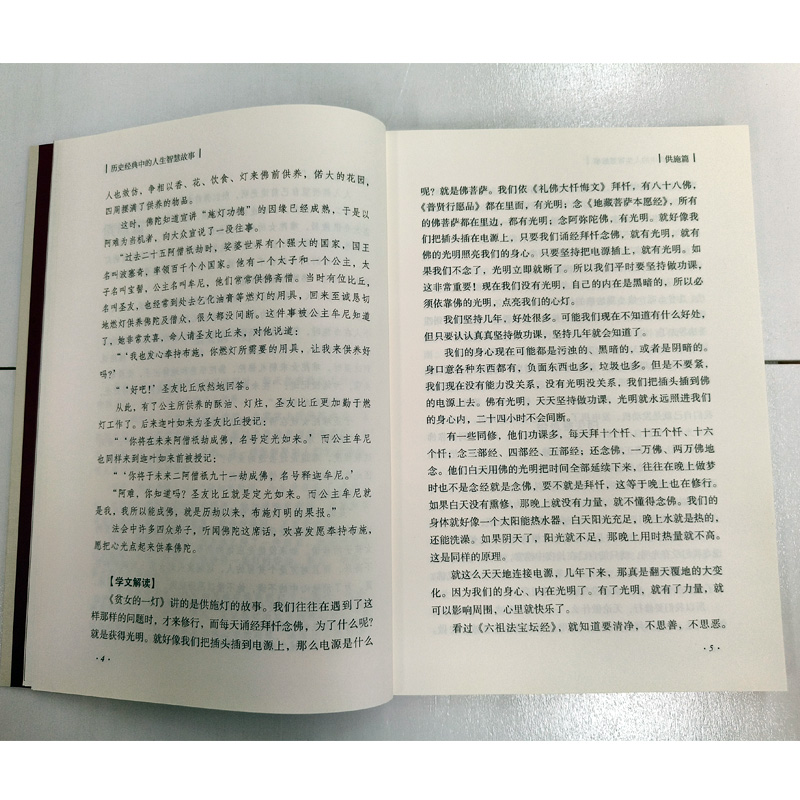 历史经典中的人生智慧故事
人也效仿，争相以香、花、饮食、灯来佛前供养，偌大的花园，
四周摆满了供养的物品。
这时，佛陀知道宣讲“施灯功德”的因缘已经成熟，于是以
阿难为当机者，向大众宣说了一段往事。
“过去二十五阿僧祇劫时，娑婆世界有个强大的国家，国王
名叫波塞奇，率领百千个小国家。他有一个太子和一个公主，太
子名叫宝髻，公主名叫牟尼，他们常常供佛斋僧。当时有位比丘，
名叫圣友，也经常到处去乞化油膏等燃灯的用具，回来至诚恳切
地燃灯供养佛陀及僧众，很久都没间断。这件事被公主牟尼知道
了，她非常欢喜，命人请圣友比丘来，对他说道：
“‘我也发心奉持布施，你燃灯所需要的用具，让我来供养好
吗？’
“‘好吧！’圣友比丘欣然地回答。
从此，有了公主所供养的酥油、灯炷，圣友比丘更加勤于燃
灯工作了。后来迦叶如来为圣友比丘授记：
“‘你将在未来阿僧祇劫成佛，名号定光如来。’而公主牟尼
也同样来到迦叶如来前被授记：
“‘你将于未来二阿僧祇九十一劫成佛，名号释迦牟尼。’
“阿难，你知道吗？圣友比丘就是定光如来。而公主牟尼就
是我，我所以能成佛，就是历劫以来，布施灯明的果报。”
法会中许多四众弟子，听闻佛陀这席话，欢喜发愿奉持布施，
愿把心光点起来供奉佛陀。
【学文解读】
《贫女的一灯》讲的是供施灯的故事。我们往往在遇到了这
样那样的问题时，才来修行，而每天诵经拜忏念佛，为了什么呢？
就是获得光明。就好像我们把插头插到电源上，那么电源是什么
·4·
供施篇
呢？就是佛菩萨。我们依《礼佛大忏悔文》拜忏，有八十八佛，
《普贤行愿品》都在里面，有光明；念《地藏菩萨本愿经》，所有
的佛菩萨都在里边，都有光明；念阿弥陀佛，有光明。就好像我
们把插头插在电源上，只要我们诵经拜忏念佛，就有光明，就有
佛的光明照亮我们的身心。只要坚持把电源插上，就有光明。如
果我们不念了，光明立即就断了。所以我们平时要坚持做功课，
这非常重要！现在我们没有光明，自己的内在是黑暗的，所以必
须依靠佛的光明，点亮我们的心灯。
我们坚持几年，好处很多。可能我们现在不知道有什么好处，
但只要认认真真坚持做功课，坚持几年就会知道了。
我们的身心现在可能都是污浊的、黑暗的，或者是阴暗的。
身口意各种东西都有，负面东西也多，垃圾也多。但是不要紧，
我们现在没有能力没关系，没有光明没关系，我们把插头插到佛
的电源上去。佛有光明，天天坚持做功课，光明就永远照进我们
的身心内，二十四小时不会间断。
有一些同修，他们功课多，每天拜十个忏、十五个忏、十六
个忏；念三部经、四部经、五部经；还念佛，一万佛、两万佛地
念。他们白天用佛的光明把时间全部延续下来，往往在晚上做梦
时也不是念经就是念佛，要不就是拜忏，这等于晚上也在修行。
如果白天没有熏修，那晚上就没有力量，就不懂得念佛。我们的
身体就好像一个太阳能热水器，白天阳光充足，晚上水就是热的，
还能洗澡。如果阴天了，阳光就不足，那晚上用时热量就不高。
这是同样的原理。
就这么天天地连接电源，几年下来，那真是翻天覆地的大变
化。因为我们的身心、内在光明了。有了光明，就有了力量，就
可以影响周围，心里就快乐了。
看过《六祖法宝坛经》，就知道要清净，不思善，不思恶。
·5·